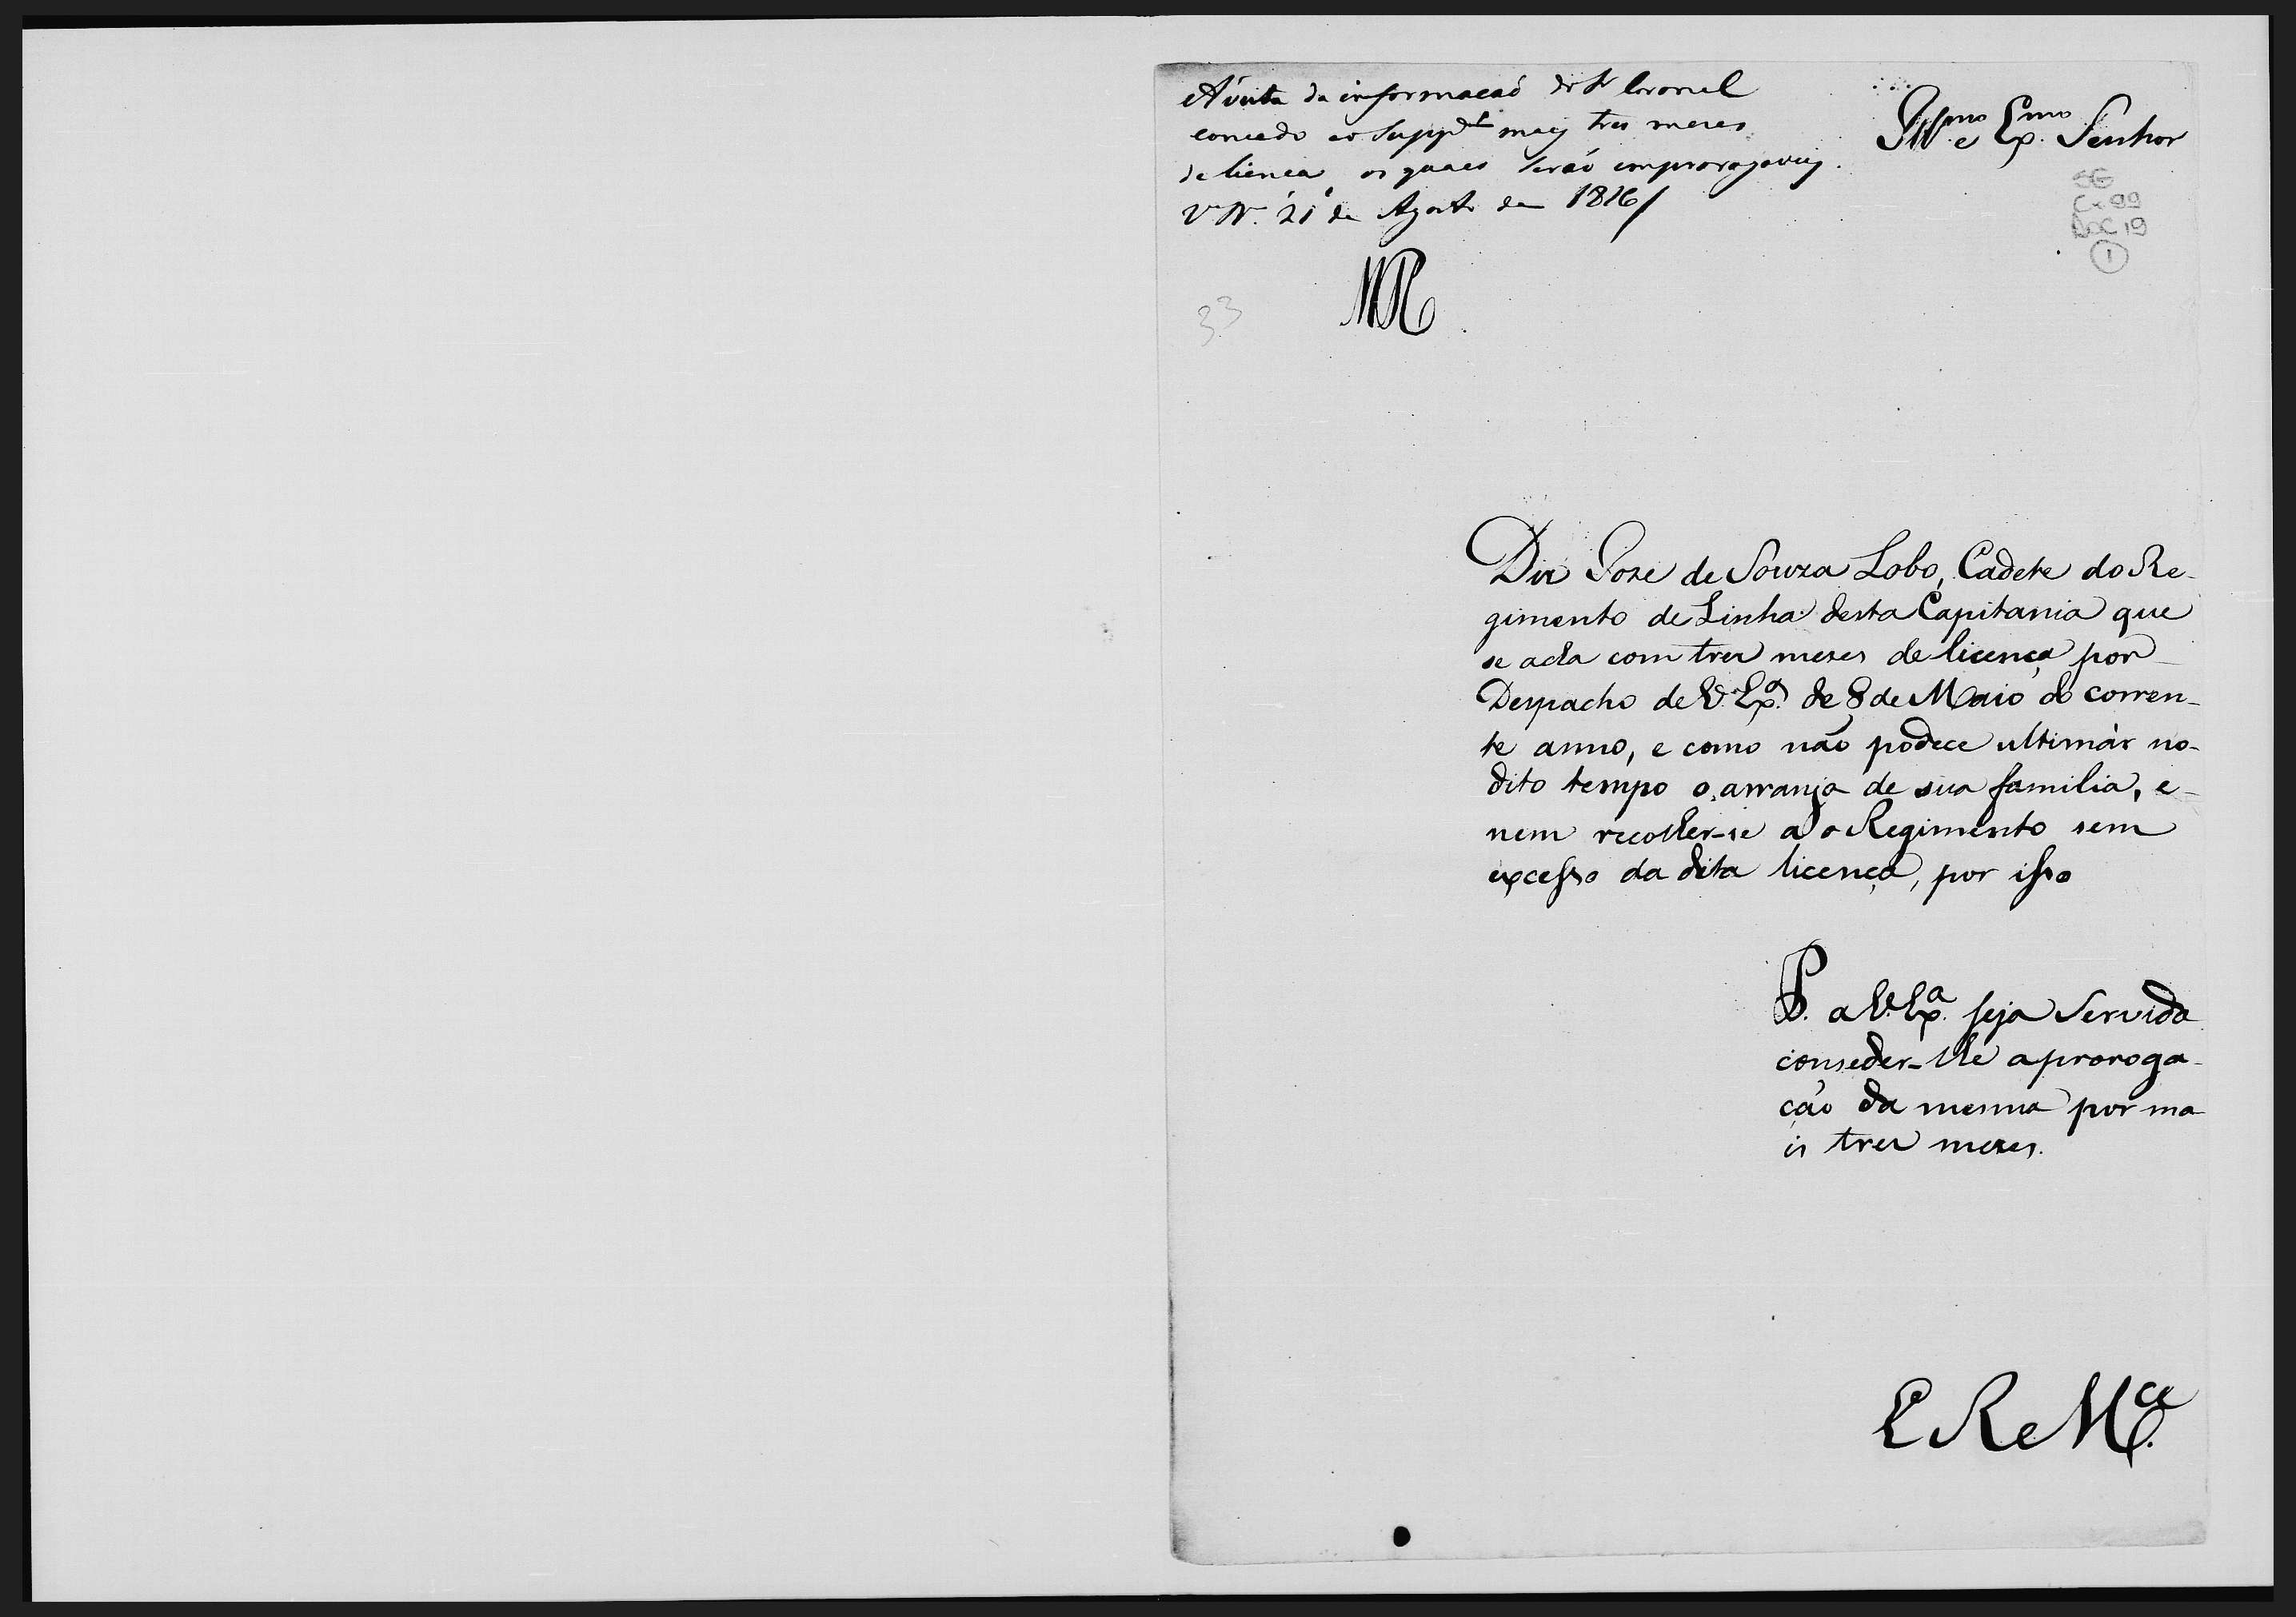 Á vista da informacaó do Sr Coronel
concedo ao Supp.te mais tres meses
de licenca os quaes seráo improrogaveis.
Va Ra. 21 de Agosto de 1816/
MR
Illmo. e Exmo. Senhor
SG
Cx 99
DOC 19
1
33
Diz Joze de Souza Lobo, Cadete do Re-
gimento de Linha desta Capitania que
se acha com trez mezes de licença por
Despacho de V. Exa. de 8 de Maio do corren-
te anno, e como não podece ultimár no-
dito tempo o arranjo de sua familia, e-
nem recolher-se ao Regimento sem
excesso da dita licença, por isso
P. a V. Exa. seja Servida
conseder-lhe a proroga-
ção da mesma por ma
is trez mezes.
E R e Mce.